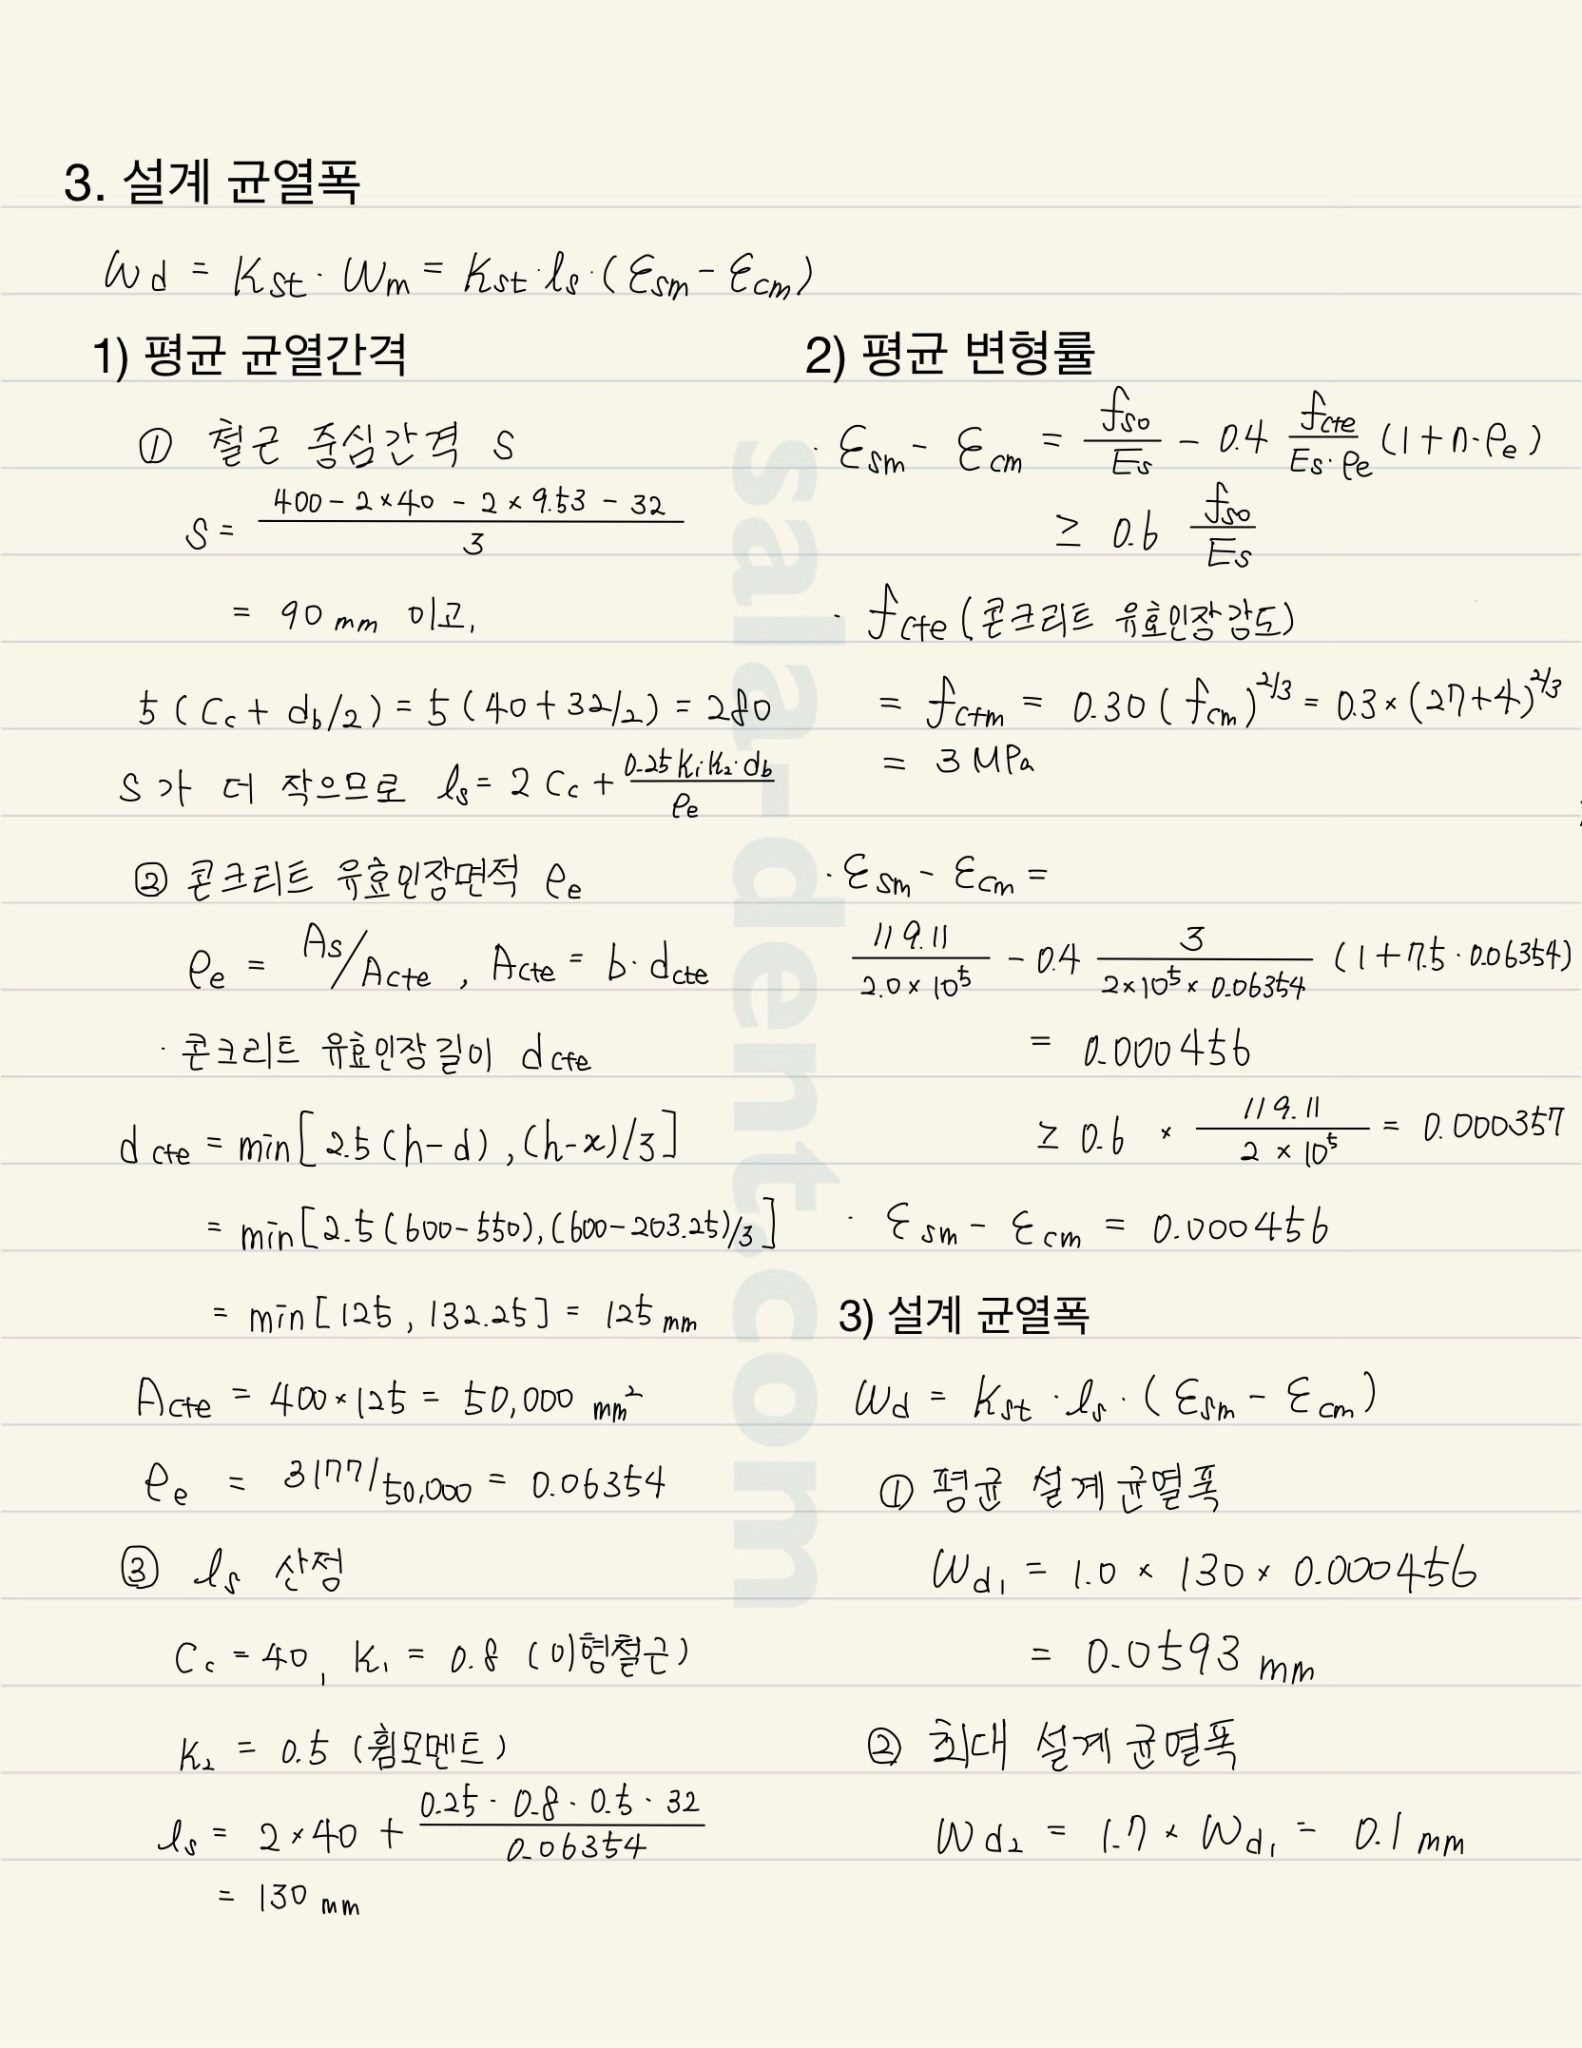 3. 설계 균열폭
Wd = Kst · Wm = Kst · ls · (εsm - εcm)
1) 평균 균열간격
① 철근 중심간격 S
S = (400 - 2×40 - 2×9.53 - 32) / 3
= 90 mm 이고,
5 (Cc + db/2) = 5 (40 + 32/2) = 280
S가 더 작으므로 ls = 2Cc + 0.25 K1 K2 · db / ρe
② 콘크리트 유효인장면적 ρe
ρe = As/Acte, Acte = b · dcte
· 콘크리트 유효인장길이 dcte
dcte = min[2.5(h-d), (h-x)/3]
= min[2.5(600-550), (600-203.25)/3]
= min[125, 132.25] = 125 mm
Acte = 400×125 = 50,000 mm²
ρe = 3177/50,000 = 0.06354
③ ls 산정
Cc = 40, K1 = 0.8 (이형철근)
K2 = 0.5 (휨모멘트)
ls = 2×40 + 0.25 · 0.8 · 0.5 · 32 / 0.06354
= 130 mm
2) 평균 변형률
· εsm - εcm = fso/Es - 0.4 fcte/(Es·ρe) (1+n·ρe)
≥ 0.6 fso/Es
· fcte (콘크리트 유효인장강도)
= fctm = 0.30 (fcm)^2/3 = 0.3×(27+4)^2/3
= 3 MPa
· εsm - εcm =
119.11 / 2.0×10⁵ - 0.4 3 / 2×10⁵×0.06354 (1+7.5·0.06354)
= 0.000456
≥ 0.6 × 119.11 / 2×10⁵ = 0.000357
· εsm - εcm = 0.000456
3) 설계 균열폭
Wd = Kst · ls · (εsm - εcm)
① 평균 설계균열폭
Wd1 = 1.0 × 130 × 0.000456
= 0.0593 mm
② 최대 설계균열폭
Wd2 = 1.7 × Wd1 = 0.1 mm
sala-dent.com